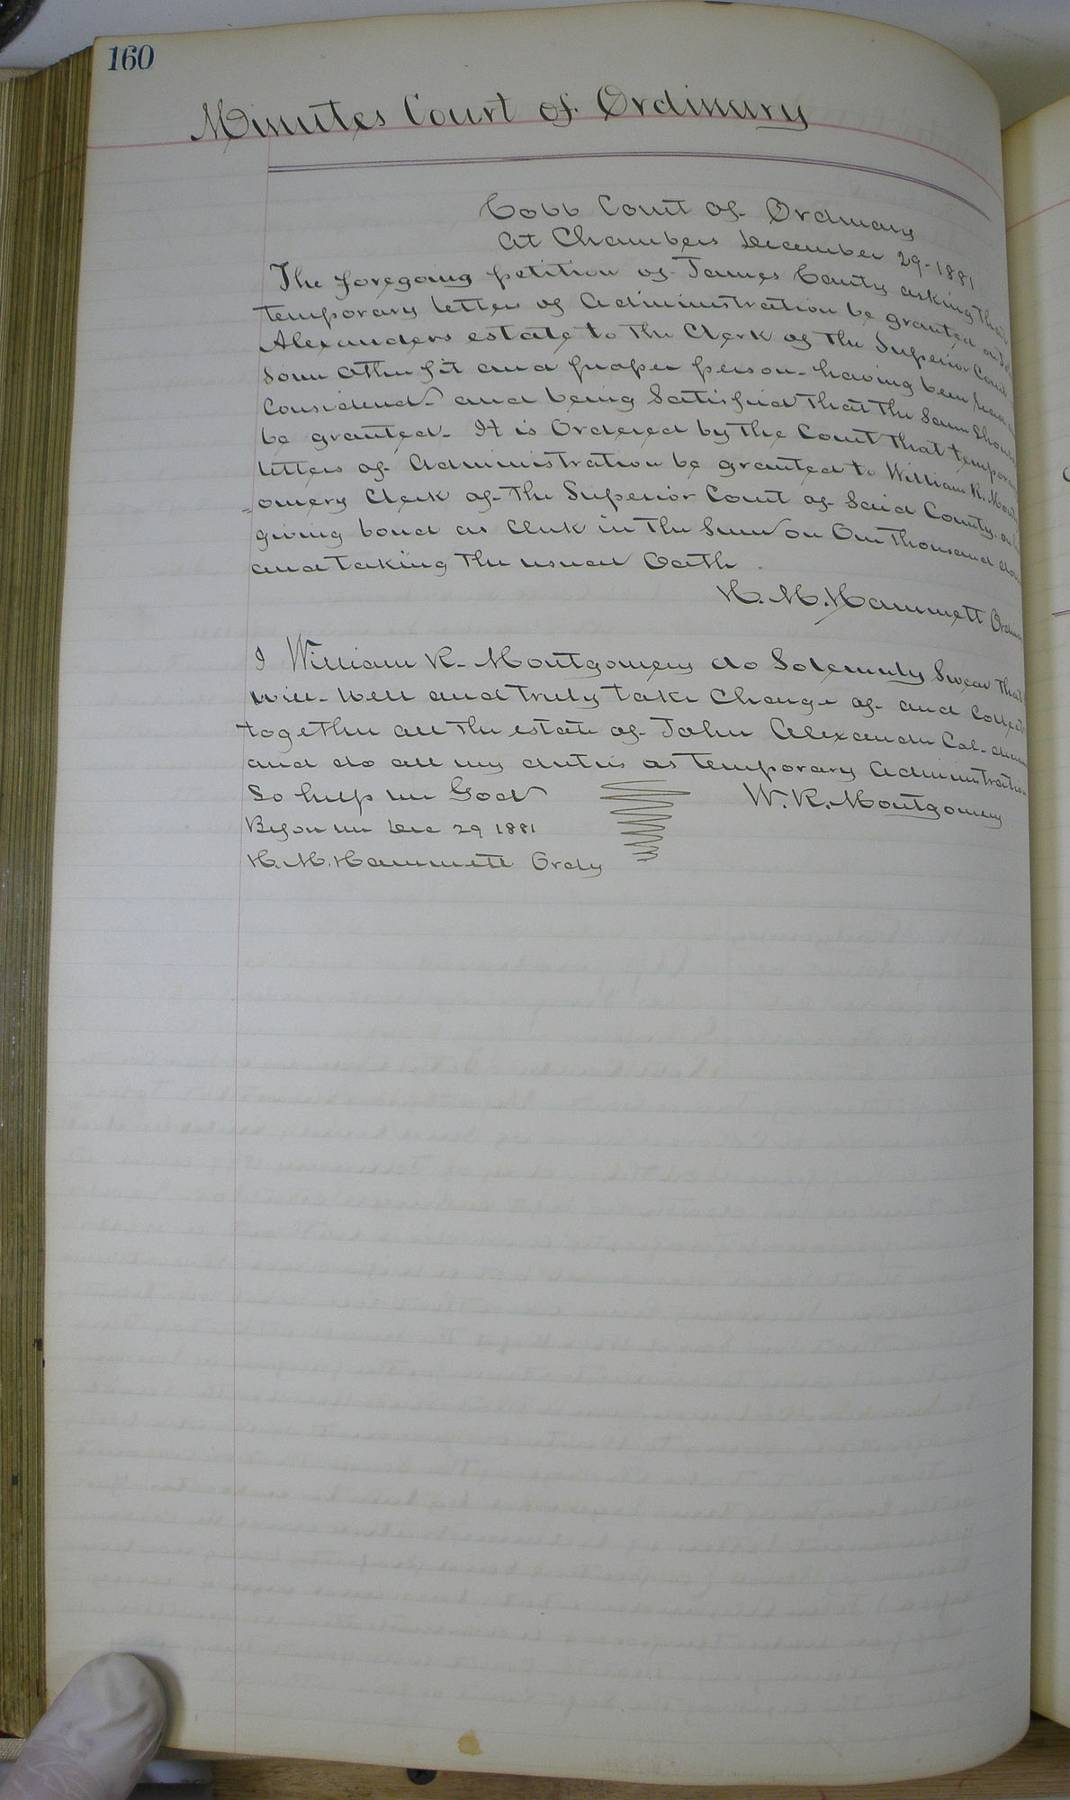 160
Minutes Court of Ordinary
Cobb Court of Ordinary
At Chambers December 29-1881
The foregoing petition of James Canty asking that
temporary letters of Administration be granted on
Alexanders estate to the Clerk of the Superior Court
Some other fit and proper person - having been
Considered - and being Satisfied that the Same Should
be granted - It is Ordered by the Court that tempora
letters of Administration be granted to William R. Mont
omery Clerk of the Superior Court of Said County. on
giving bond as Clerk in the Sum on One thousand dol
and taking the usual Oath.
H. M. Hammett Ordin
I William R. Montgomery do Solemnly Swear that
will - well and truly take Charge of - and Collect
together all the estate of John Alexander Col - dec
and do all my duties as temporary Administrator
So help me God
W. R. Montgomery
Before me Dec 29 1881
H. M. Hammett Ordy